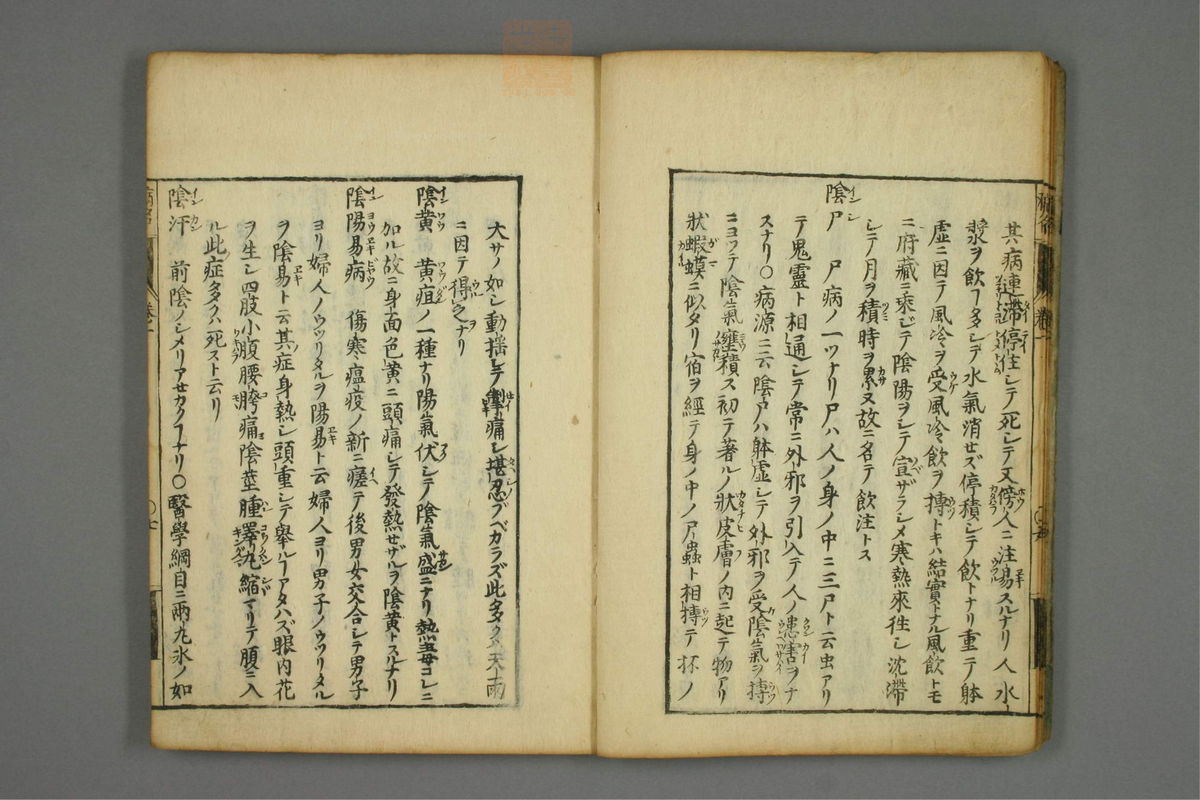 其病連滞停住シテ死シテ又傍人ニ注易スルナリ人水
漿ヲ飲ヿ多シテ水氣消セズ停積シテ飲トナリ重テ躰
虚ニ因テ風冷ヲ受風冷飲ヲ搏トキハ結實トナル風飲トモ
ニ府藏ニ乘ジテ陰陽ヲシテ宣ザラシメ寒熱來徃シ沈滯
シテ月ヲ積時ヲ累又故ニ名テ飲注トス
陰尸 尸病ノ一ツナリ尸ハ人ノ身ノ中ニ三尸ト云虫アリ
テ鬼靈ト相通シテ常ニ外邪ヲ引入テ人ノ患害ヲナ
スナリ〇病源ニ云陰尸ハ躰虚シテ外邪ヲ受陰氣ヲ搏
ニヨツテ陰氣壅積ス初テ著ルノ狀皮膚ノ内ニ起テ物アリ
狀蝦蟆ニ似タリ宿ヲ經テ身ノ中ノ尸蟲ト相搏テ杯ノ
大サノ如シ動揺シテ掣痛シ堪忍ブベカラズ此多クハ天雨
ニ因テ得之ナリ
陰黄 黄疸ノ一種ナリ陽氣伏シテ陰氣盛ニナリ熱毒コレニ
加ル故ニ身面色黄ニ頭痛シテ發熱セザルヲ陰黄トスルナリ
陰陽易病 傷寒瘟疫ノ新ニ瘥テ後男女交合シテ男子
ヨリ婦人ノウツリタルヲ陽易ト云婦人ヨリ男子ノウツリタル
ヲ陰易ト云其症身熱シ頭重シテ舉ルヿアタハズ眼内花
ヲ生シ四肢小腹腰胯痛陰莖腫睾丸縮マリテ腹ニ入
ル此症多クハ死スト云リ
陰汗 前陰ノシメリアセカクヿナリ〇醫學綱目ニ兩丸氷ノ如